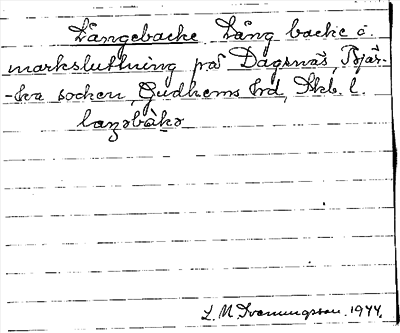 Långebacke Lång backe å
marksluttning på Dagsnäs, Bjär-
-ka socken, Gudhems hd, Skb. l.
laŋəbàkə
L. M. Svenungsson. 1944.